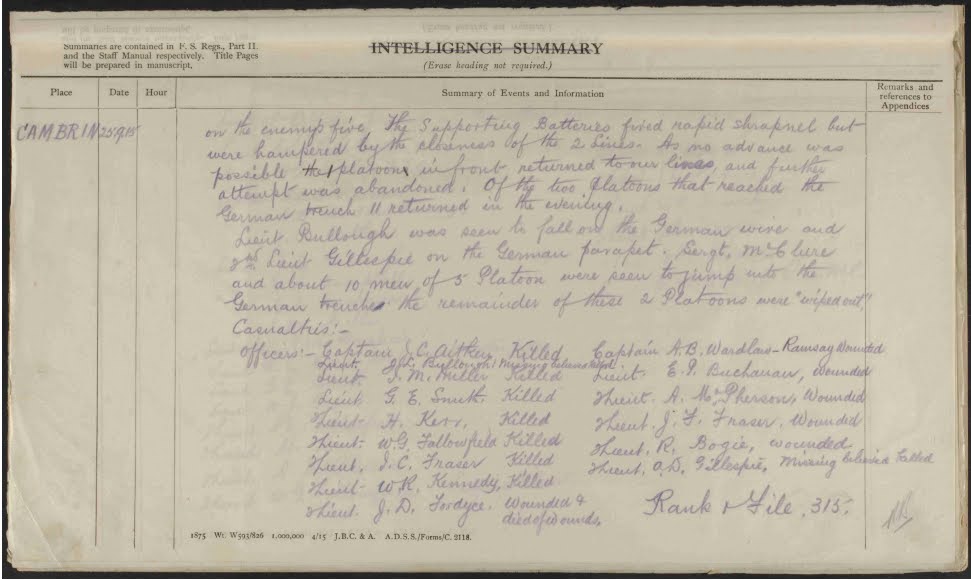 Summaries are contained in F. S. Regs., Part II.
and the Staff Manual respectively. Title Pages
will be prepared in manuscript.
INTELLIGENCE SUMMARY
(Erase heading not required.)
Place Date Hour Summary of Events and Information Remarks and references to Appendices
CAMBRIN 25.9.15
on the enemy's five. The Supporting Batteries fired rapid shrapnel but
were hampered by the closeness of the 2 Lines. As no advance was
possible the platoons in front returned to our lines, and further
attempt was abandoned. Of the two Platoons that reached the
German trench 11 returned in the evening.
Lieut. Bullough was seen to fall on the German wire and
2nd Lieut Gillespie on the German parapet. Sergt. McClure
and about 10 men of 5 Platoon were seen to jump into the
German trenches the remainder of these 2 Platoons were "wiped out"
Casualties:-
Officers:- Captain J.C. Aitken Killed Captain A.B. Wardlaw-Ramsay Wounded
Lieut. J.L. Bullough Missing believed killed.
Lieut. J.M. Miller Killed Lieut. E.P. Buchanan, wounded
Lieut G.E. Smith, Killed 2Lieut. A. McPherson, Wounded
2Lieut H. Kerr, Killed 2Lieut. J.F. Fraser, Wounded
2Lieut- W.G. Fallowfield Killed 2Lieut, R. Bogie, wounded
2Lieut, J.C. Fraser Killed 2Lieut, A.D. Gillespie, Missing believed killed
2Lieut- W.R. Kennedy, Killed
2Lieut. J.D. Fordyce. Wounded &
died of wounds.
Rank & File, 315.
1875 Wt. W593/826 1,000,000 4/15 J.B.C. & A. A.D.S.S./Forms/C. 2118.